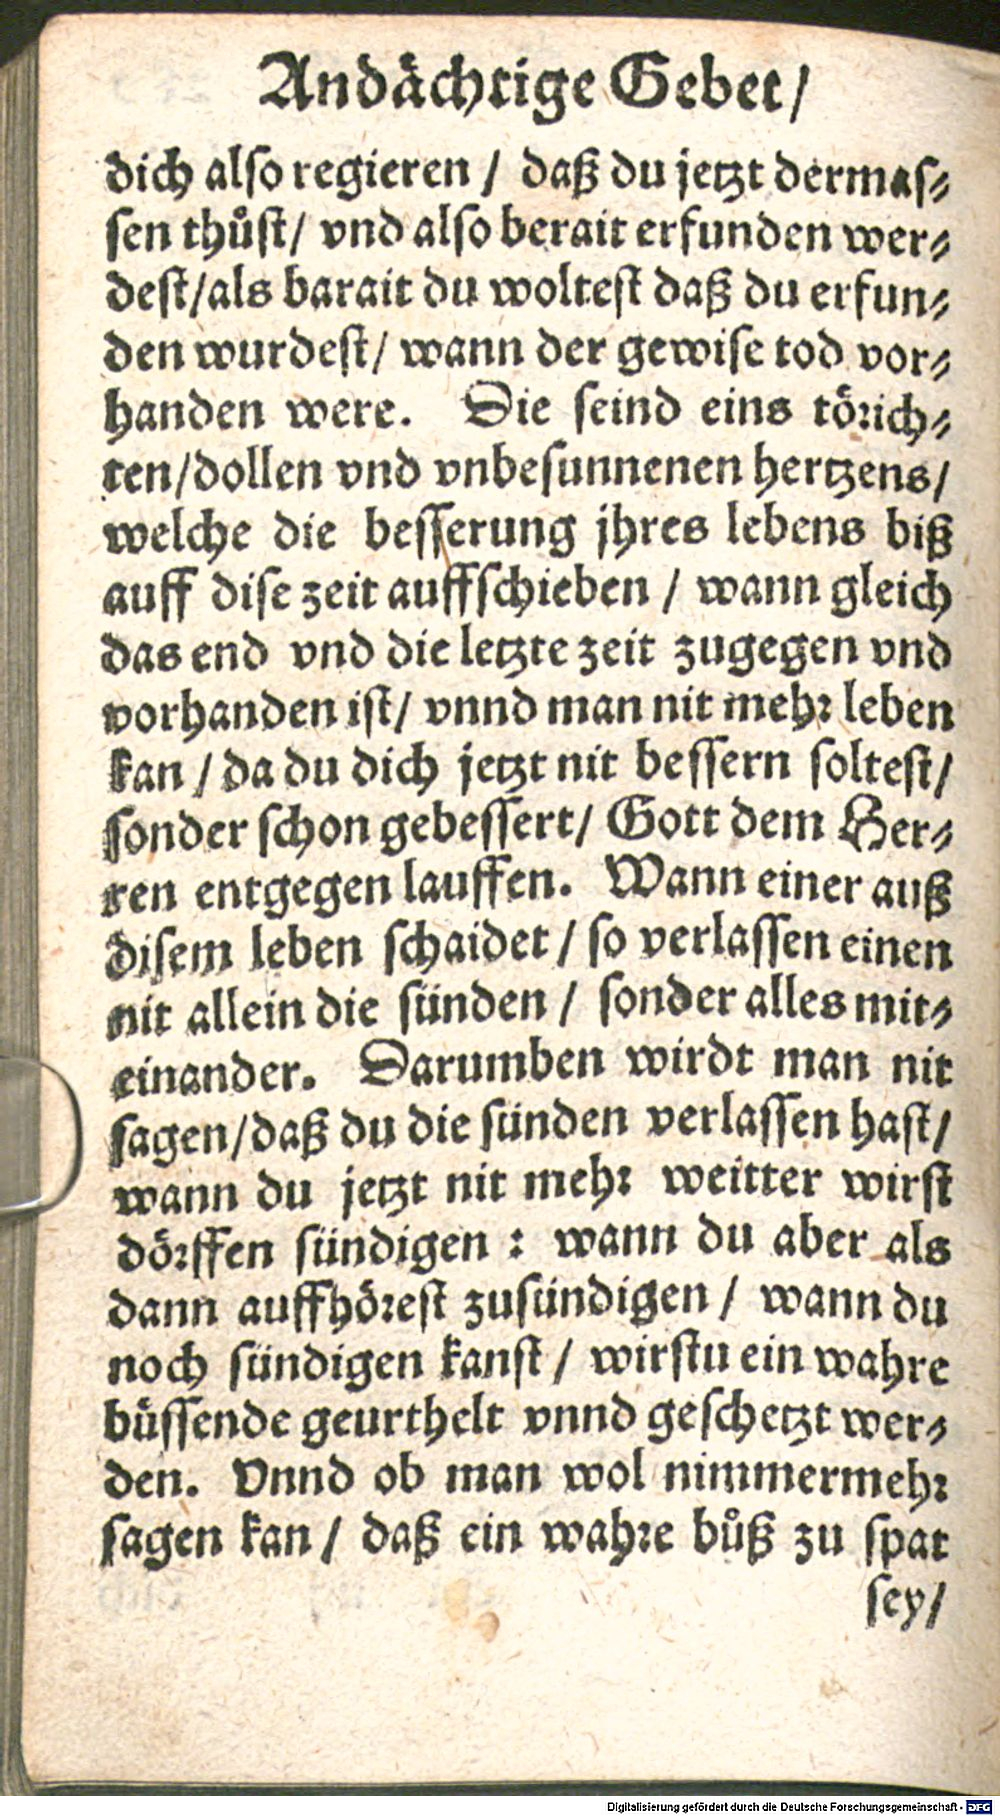 Andächtige Gebet/
dich also regieren / daß du jetzt dermas⸗
sen thůst/ vnd also berait erfunden wer⸗
dest/als barait du woltest daß du erfun⸗
den wurdest/ wann der gewise tod vor⸗
handen were. Die seind eins törich⸗
ten/dollen vnd vnbesunnenen hertzens/
welche die besserung jhres lebens biß
auff dise zeit auffschieben / wann gleich
das end vnd die letzte zeit zugegen vnd
vorhanden ist/ vnnd man nit mehr leben
kan / da du dich jetzt nit bessern soltest/
sonder schon gebessert/ Gott dem Her⸗
ren entgegen lauffen. Wann einer auß
disem leben schaidet / so verlassen einen
nit allein die sünden / sonder alles mit⸗
einander. Darumben wirdt man nit
sagen/daß du die sünden verlassen hast/
wann du jetzt nit mehr weitter wirst
dörffen sündigen : wann du aber als
dann auffhörest zusündigen / wann du
noch sündigen kanst / wirstu ein wahre
büssende geurthelt vnnd geschetzt wer⸗
den. Vnnd ob man wol nimmermehr
sagen kan / daß ein wahre bůß zu spat
sey/
Digitalisierung gefördert durch die Deutsche Forschungsgemeinschaft - DFG